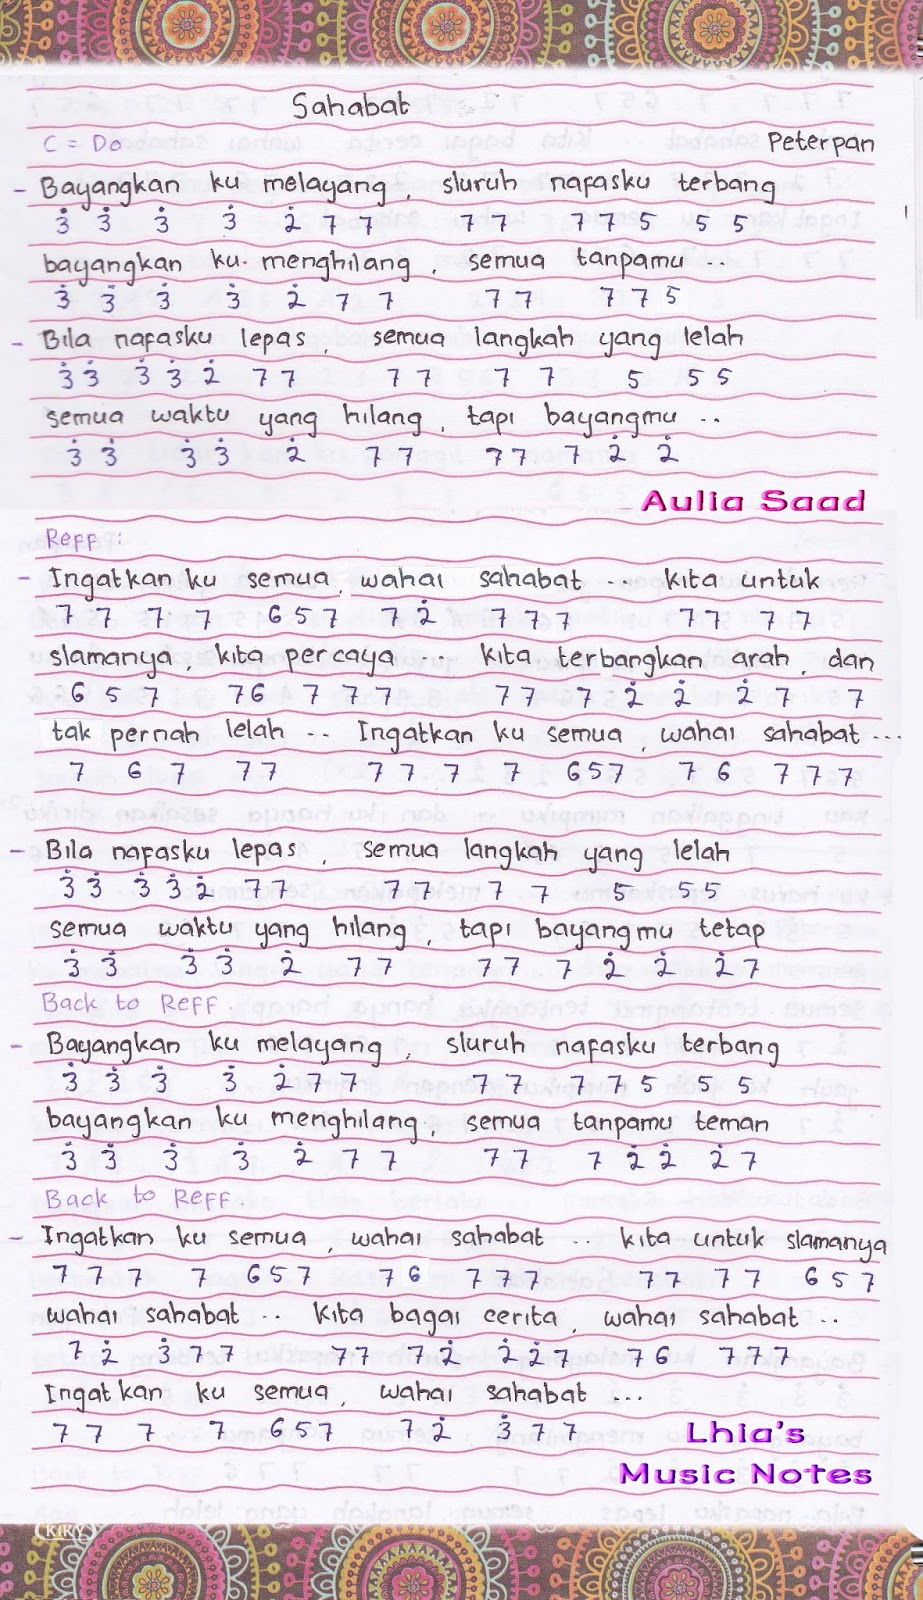 Sahabat
C = Do Peterpan
- Bayangkan ku melayang, sluruh nafasku terbang
3̇ 3̇ 3̇ 3̇ 2̇ 7 7 7 7 7 7 5 5 5
bayangkan ku. menghilang, semua tanpamu ..
3̇ 3̇ 3̇ 3̇ 2̇ 7 7 7 7 7 7 5
- Bila nafasku lepas, semua langkah yang lelah
3̇ 3̇ 3̇ 3̇ 2̇ 7 7 7 7 7 7 5 5 5
semua waktu yang hilang, tapi bayangmu ..
3̇ 3̇ 3̇ 3̇ 2̇ 7 7 7 7 7 2̇ 2̇
Aulia Saad
Reff:
- Ingatkan ku semua, wahai sahabat ... kita untuk
7 7 7 7 6 5 7 7 2̇ 7 7 7 7 7 7 7
slamanya, kita percaya ... kita terbangkan arah, dan
6 5 7 7 6 7 7 7 7 7 7 2̇ 2̇ 2̇ 7 7
tak pernah lelah .. Ingatkan ku semua, wahai sahabat ...
7 6 7 7 7 7 7 7 7 6 5 7 7 6 7 7 7
- Bila nafasku lepas, semua langkah yang lelah
3̇ 3̇ 3̇ 3̇ 2̇ 7 7 7 7 7 7 5 5 5
semua waktu yang hilang, tapi bayangmu tetap
3̇ 3̇ 3̇ 3̇ 2̇ 7 7 7 7 7 2̇ 2̇ 2̇ 7
Back to Reff
- Bayangkan ku melayang, sluruh nafasku terbang
3̇ 3̇ 3̇ 3̇ 2̇ 7 7 7 7 7 7 5 5 5
bayangkan ku menghilang, semua tanpamu teman
3̇ 3̇ 3̇ 3̇ 2̇ 7 7 7 7 7 2̇ 2̇ 2̇ 7
Back to Reff
- Ingatkan ku semua, wahai sahabat .. kita untuk slamanya
7 7 7 7 6 5 7 7 6 7 7 7 7 7 7 7 6 5 7
wahai sahabat .. kita bagai cerita, wahai sahabat ..
7 2̇ 3̇ 7 7 7 7 7 2̇ 2̇ 2̇ 7 7 6 7 7 7
Ingatkan ku semua, wahai sahabat ...
7 7 7 7 6 5 7 7 2̇ 3̇ 7 7
Lhia's
Music Notes
KIKY